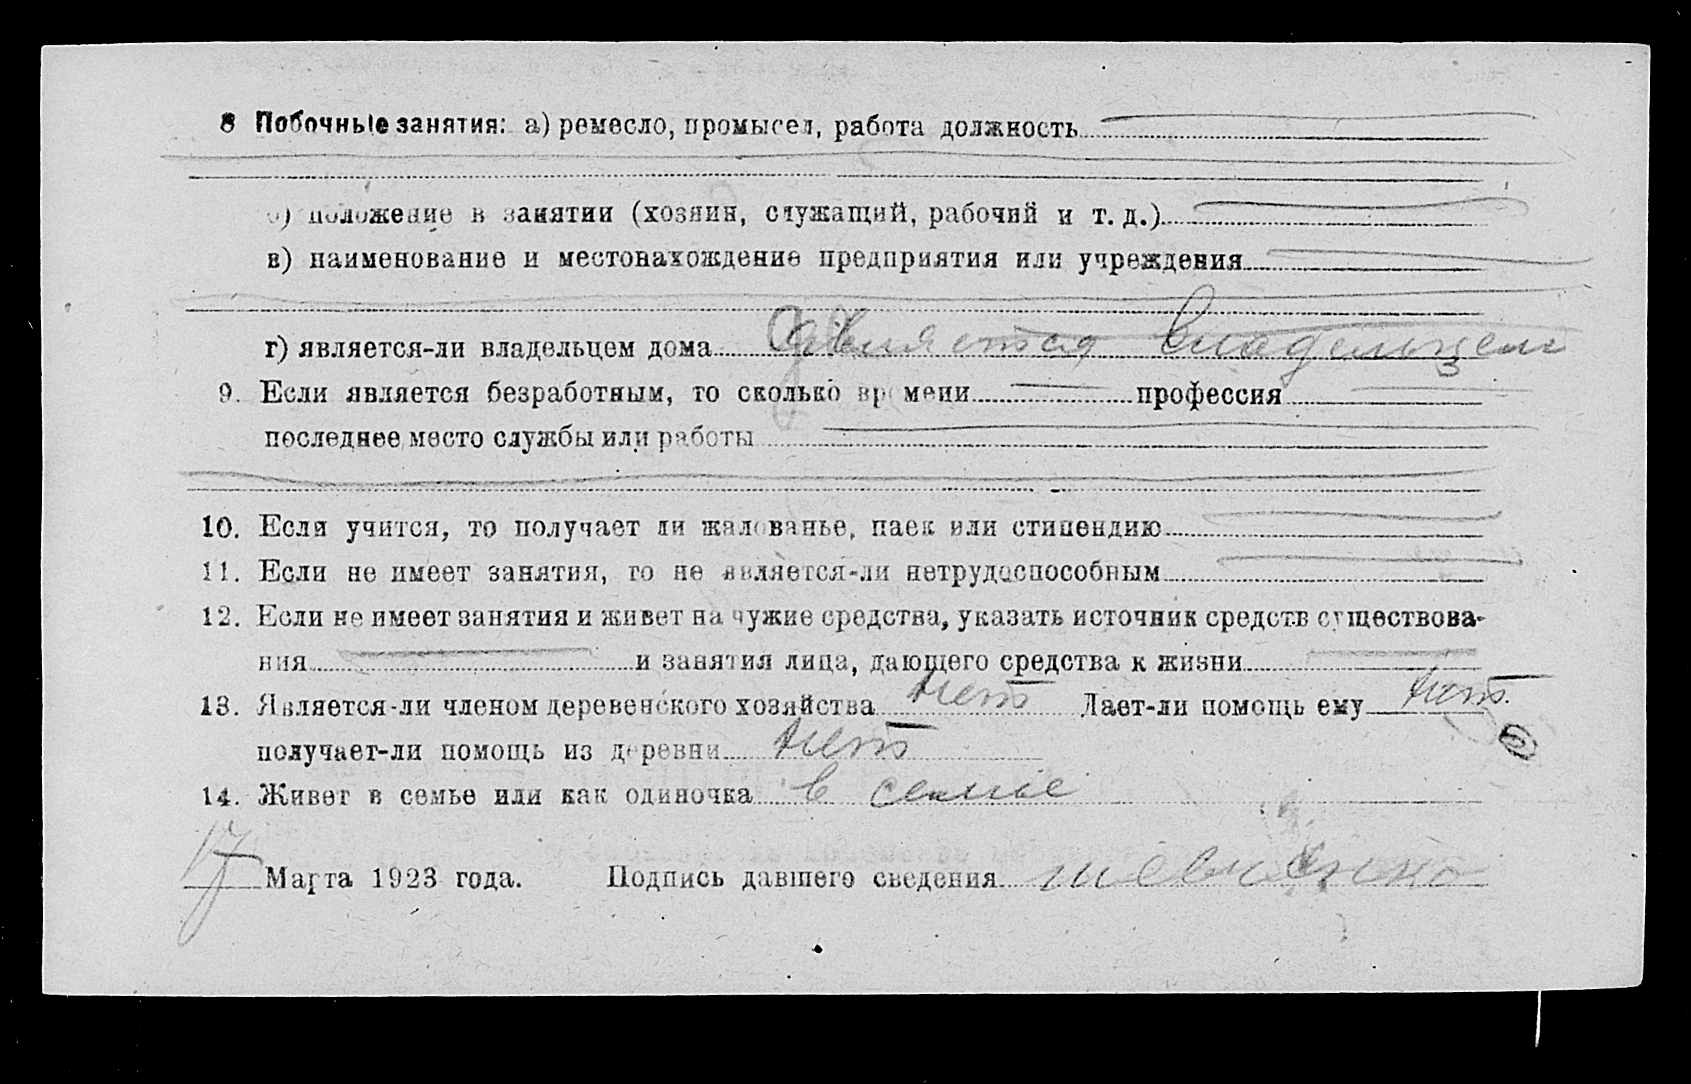 8 Побочные занятия: а) ремесло, промысел, работа должность
б) положение в занятии (хозяин, служащий, рабочий и т. д.)
в) наименование и местонахождение предприятия или учреждения
г) является-ли владельцем дома является владельцем
9. Если является безработным, то сколько времени профессия
последнее место службы или работы
10. Если учится, то получает ли жалованье, паек или стипендию
11. Если не имеет занятия, то не является-ли нетрудоспособным
12. Если не имеет занятия и живет на чужие средства, указать источник средств существова-
ния и занятия лица, дающего средства к жизни
13. Является-ли членом деревенского хозяйства нет Дает-ли помощь ему нет.
получает-ли помощь из деревни нет
14. Живет в семье или как одиночка в семье
17 Марта 1923 года. Подпись давшего сведения